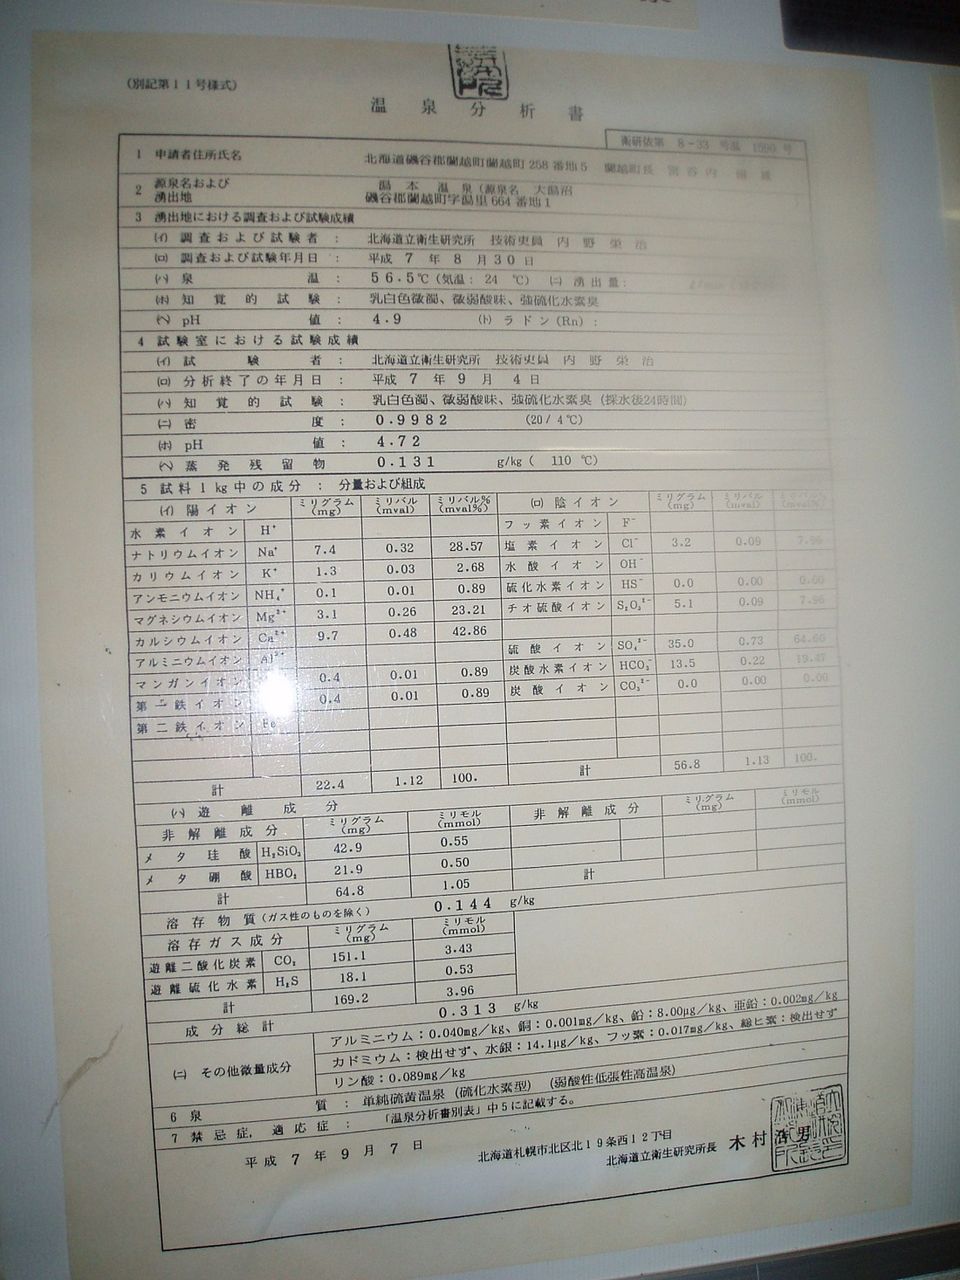 (別記第11号様式)
温泉分析書
衛研依第 8-33 号温 1590 号
1 申請者住所氏名 北海道磯谷郡蘭越町蘭越町258番地5 蘭越町長
2 源泉名および 湯本温泉(源泉名 大湯沼
湧出地 磯谷郡蘭越町字湯里664番地1
3 湧出地における調査および試験成績
(イ) 調査および試験者 : 北海道立衛生研究所 技術吏員 内野栄治
(ロ) 調査および試験年月日 : 平成7年8月30日
(ハ) 泉温 : 56.5℃(気温: 24 ℃) (ニ) 湧出量:
(ホ) 知覚的試験 : 乳白色微濁、微弱酸味、強硫化水素臭
(ヘ) pH値 : 4.9 (ト) ラドン(Rn) :
4 試験室における試験成績
(イ) 試験者 : 北海道立衛生研究所 技術吏員 内野栄治
(ロ) 分析終了の年月日 : 平成7年9月4日
(ハ) 知覚的試験 : 乳白色濁、微弱酸味、強硫化水素臭(採水後24時間)
(ニ) 密度 : 0.9982 (20/4℃)
(ホ) pH値 : 4.72
(ヘ) 蒸発残留物 0.131 g/kg( 110 ℃)
5 試料1kg中の成分 : 分量および組成
(イ) 陽イオン ミリグラム(mg) ミリバル(mval) ミリバル%(mval%) (ロ) 陰イオン ミリグラム(mg) ミリバル(mval) ミリバル%(mval%)
水素イオン H⁺ フッ素イオン F⁻
ナトリウムイオン Na⁺ 7.4 0.32 28.57 塩素イオン Cl⁻ 3.2 0.09 7.96
カリウムイオン K⁺ 1.3 0.03 2.68 水酸イオン OH⁻
アンモニウムイオン NH₄⁺ 0.1 0.01 0.89 硫化水素イオン HS⁻ 0.0 0.00 0.00
マグネシウムイオン Mg²⁺ 3.1 0.26 23.21 チオ硫酸イオン S₂O₃²⁻ 5.1 0.09 7.96
カルシウムイオン Ca²⁺ 9.7 0.48 42.86
アルミニウムイオン Al³⁺ 硫酸イオン SO₄²⁻ 35.0 0.73 64.60
マンガンイオン 0.4 0.01 0.89 炭酸水素イオン HCO₃⁻ 13.5 0.22 19.47
第一鉄イオン 0.4 0.01 0.89 炭酸イオン CO₃²⁻ 0.0 0.00 0.00
第二鉄イオン Fe
計 22.4 1.12 100. 計 56.8 1.13 100.
(ハ) 遊離成分
非解離成分 ミリグラム(mg) ミリモル(mmol) 非解離成分 ミリグラム(mg) ミリモル(mmol)
メタ珪酸 H₂SiO₃ 42.9 0.55
メタ硼酸 HBO₂ 21.9 0.50
計 64.8 1.05 計
溶存物質(ガス性のものを除く) 0.144 g/kg
溶存ガス成分 ミリグラム(mg) ミリモル(mmol)
遊離二酸化炭素 CO₂ 151.1 3.43
遊離硫化水素 H₂S 18.1 0.53
計 169.2 3.96
成分総計 0.313 g/kg
(ニ) その他微量成分 アルミニウム:0.040mg/kg、銅:0.001mg/kg、鉛:8.00μg/kg、亜鉛:0.002mg/kg
カドミウム:検出せず、水銀:14.1μg/kg、フッ素:0.017mg/kg、総ヒ素:検出せず
リン酸:0.089mg/kg
6 泉質 : 単純硫黄温泉(硫化水素型) (弱酸性低張性高温泉)
7 禁忌症, 適応症 : 「温泉分析書別表」中5に記載する。
平成7年9月7日
北海道札幌市北区北19条西12丁目
北海道立衛生研究所長 木村浩男